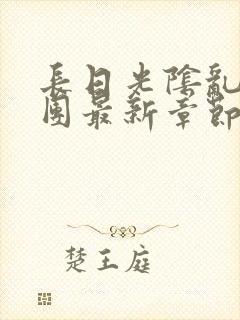 長日光陰亂
團最新章節
楚王庭